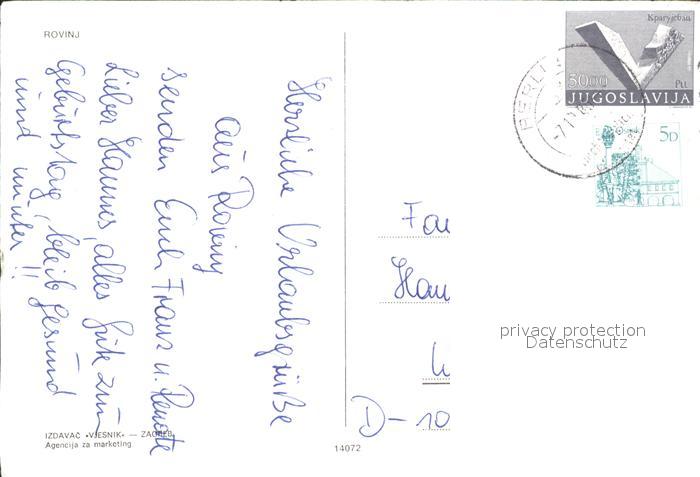 ROVINJ
Herzliche Urlaubsgrüße
aus Rovinj
senden Euch Franz u. Renate
Lieber Hannes, alles Gute zum
Geburtstag, bleib gesund
und munter !!
IZDAVAČ »VJESNIK« — ZAGREB
Agencija za marketing
14072
Крагујевац
5000
Ptt
JUGOSLAVIJA
5D
Fam
Han
D-10
privacy protection
Datenschutz